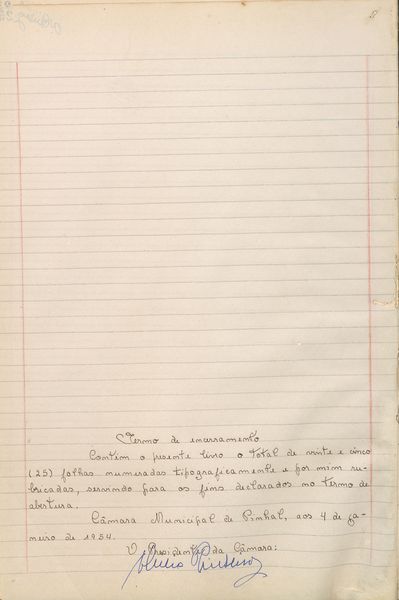 Termo de encerramento
Contém o presente livro o total de vinte e cinco
(25) folhas numeradas tipograficamente e por mim ru-
bricadas, servindo para os fins declarados no termo de
abertura.
Câmara Municipal de Pinhal, aos 4 de ja-
neiro de 1954.
O Presidente da Câmara: